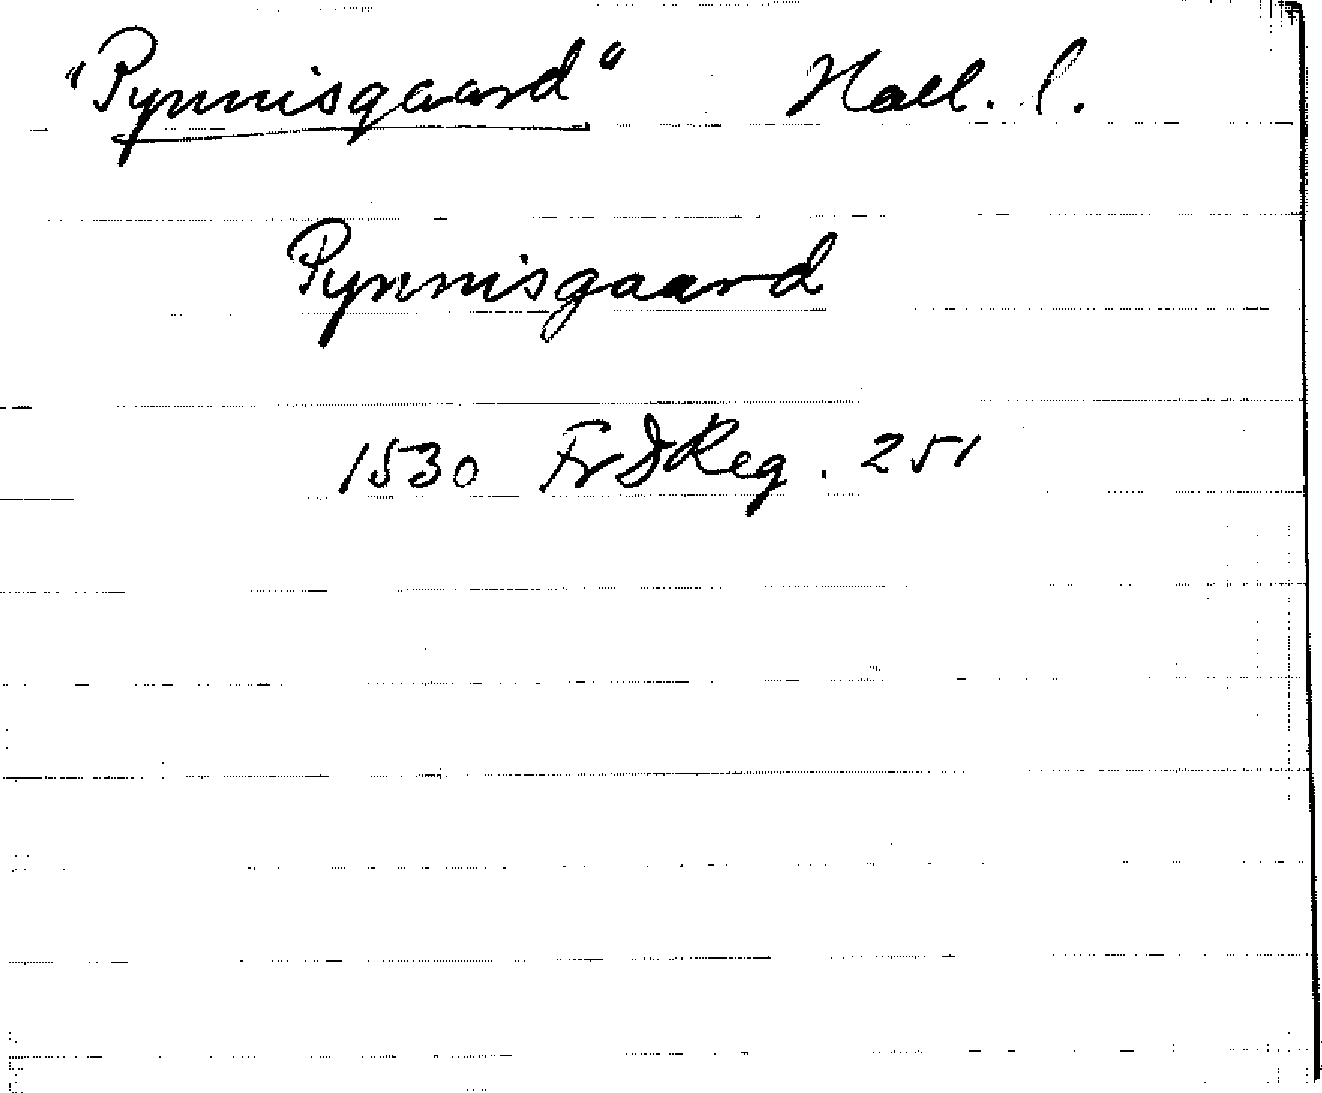 "Pynnisgaard" Hall. l.
Pynnisgaard
1530 FrIReg. 251